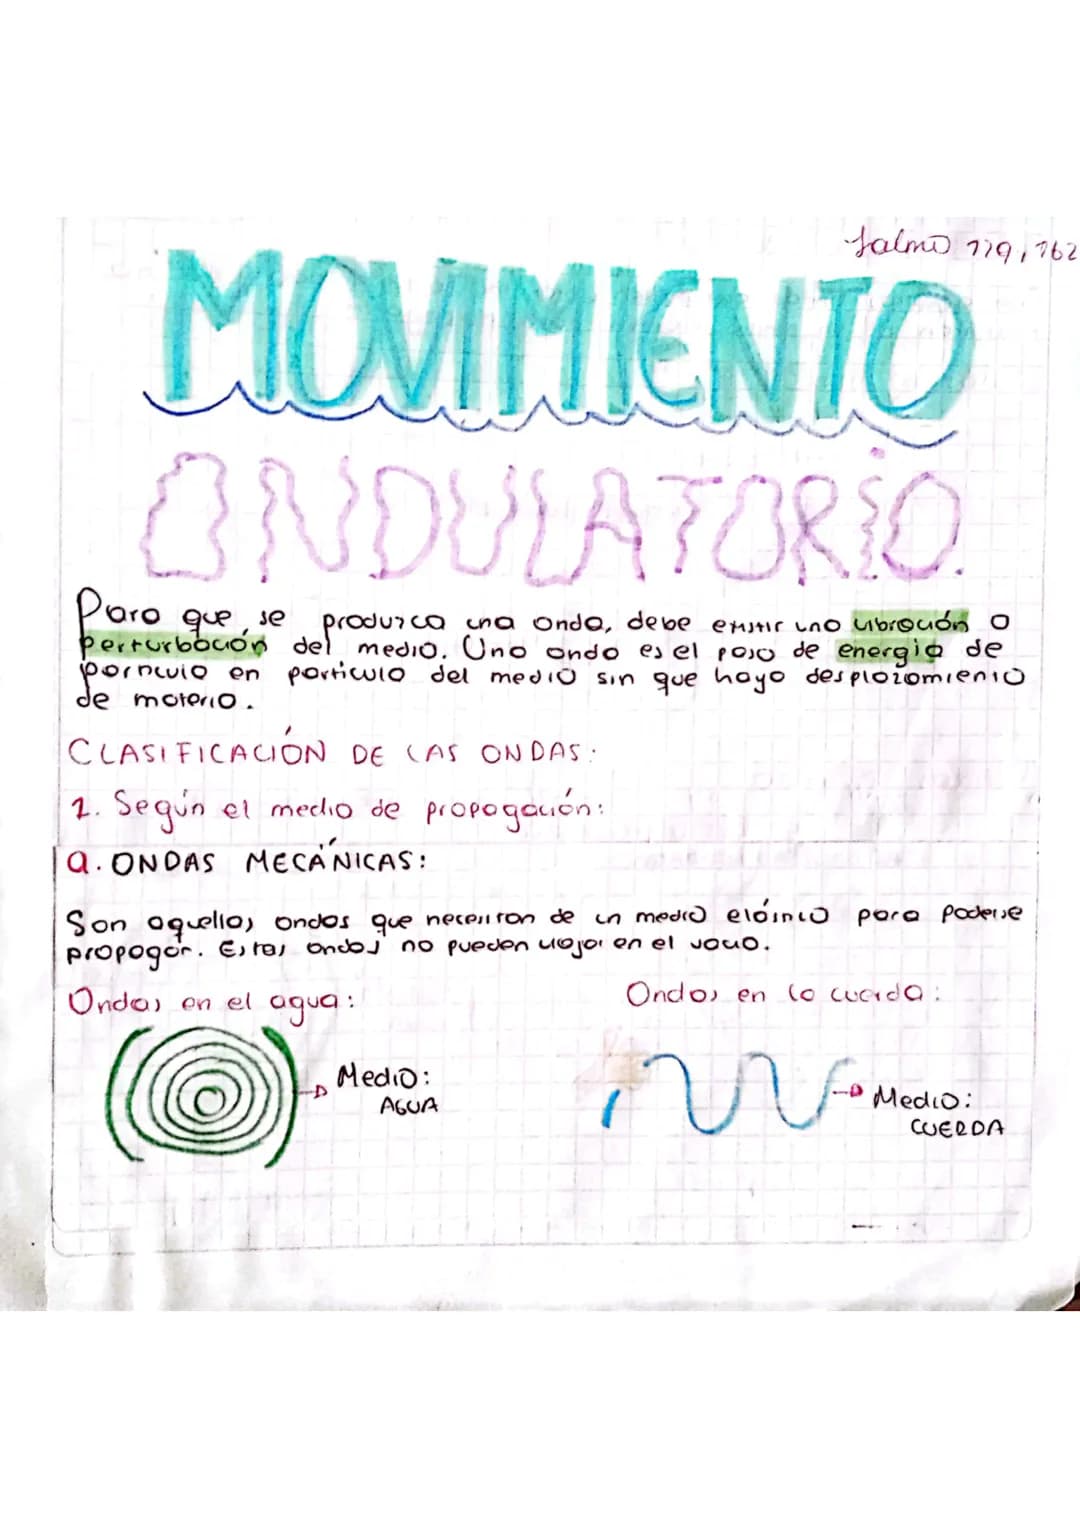 Salmo 119, 162
MOVIMIENTO
ONDULATORIO.
Para que se produzca una onda, debe existir una vibración o
perturbación del medio. Una onda es el paso de energia de
partícula en partícula del medio sin que haya desplazamiento
de materia.
CLASIFICACIÓN DE LAS ONDAS:
1. Según el medio de propagación:
a. ONDAS MECÁNICAS:
Son aquellas ondas que necesitan de un medio elástico para poderse
propagar. Estas ondas no pueden viajar en el vacio.
Ondas en el agua:
Ondas en la cuerda:
Medio:
AGUA
Medio:
CUERDA